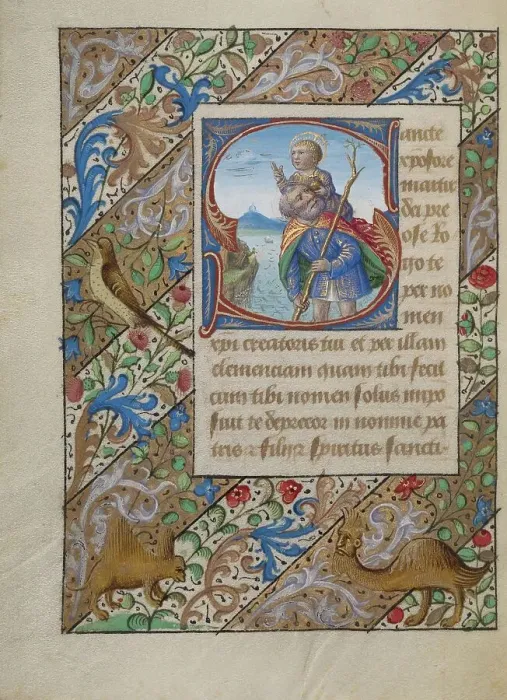 Sancte
xpofore
martir
dei pre
ciose ro
go te
per no
men
xpi creatoris tui et per illam
clementiam quam tibi fecit
cum tibi nomen solus impo
suit te deprecor in nomine pa
tris et filii et spiritus sancti